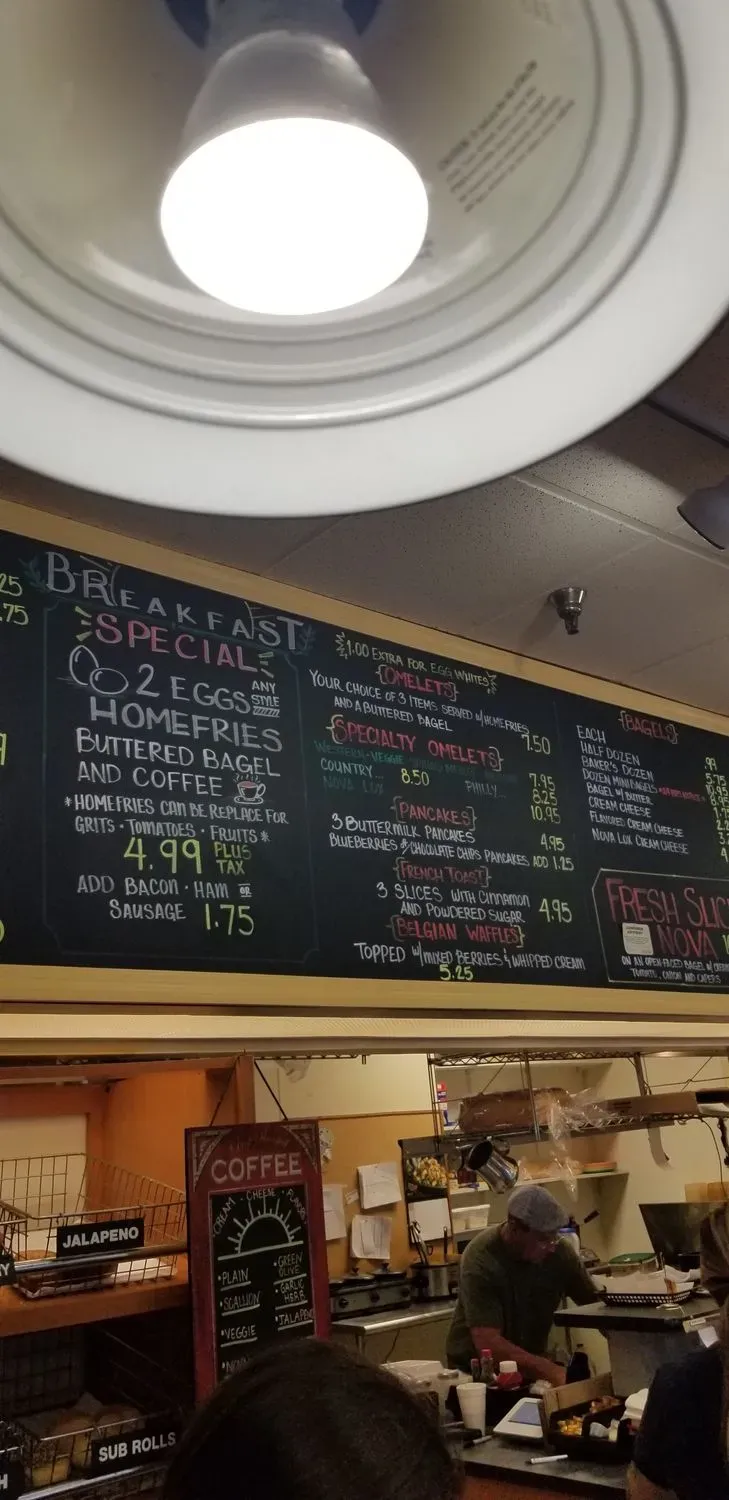 25
.75
BREAKFAST
SPECIAL
2 EGGS ANY STYLE
HOMEFRIES
BUTTERED BAGEL
AND COFFEE
*HOMEFRIES CAN BE REPLACE FOR
GRITS · TOMATOES · FRUITS*
4.99 PLUS TAX
ADD BACON · HAM OR
SAUSAGE 1.75
1.00 EXTRA FOR EGG WHITES
{OMELETS}
YOUR CHOICE OF 3 ITEMS SERVED W/HOMEFRIES
AND A BUTTERED BAGEL 7.50
{SPECIALTY OMELETS}
WESTERN-VEGGIE 7.95
COUNTRY... 8.50 PHILLY... 8.25
NOVA LOX 10.95
{PANCAKES}
3 BUTTERMILK PANCAKES 4.95
BLUEBERRIES CHOCOLATE CHIPS PANCAKES ADD 1.25
{FRENCH TOAST}
3 SLICES WITH CINNAMON
AND POWDERED SUGAR 4.95
{BELGIAN WAFFLES}
TOPPED W/MIXED BERRIES & WHIPPED CREAM
5.25
{BAGELS}
EACH .99
HALF DOZEN 5.75
BAKER'S DOZEN
DOZEN MINI BAGELS
BAGEL W/ BUTTER
CREAM CHEESE
FLAVORED CREAM CHEESE
NOVA LOX CREAM CHEESE
FRESH SLIC
NOVA
ON AN OPEN-FACED BAGEL W/ CREAM
TOMATO, ONION AND CAPERS
COFFEE
CREAM CHEESE FLAVORS
• PLAIN
• SCALLION
• VEGGIE
• GREEN OLIVE
• GARLIC HERB
• JALAPENO
JALAPENO
SUB ROLLS